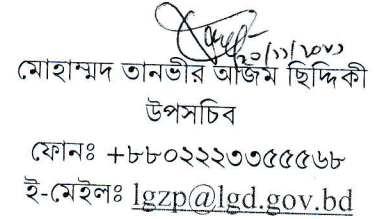 ২০/১১/২০২৩
মোহাম্মদ তানভীর আজম ছিদ্দিকী
উপসচিব
ফোনঃ +৮৮০২২২৩৩৫৫৫৬৮
ই-মেইলঃ lgzp@lgd.gov.bd